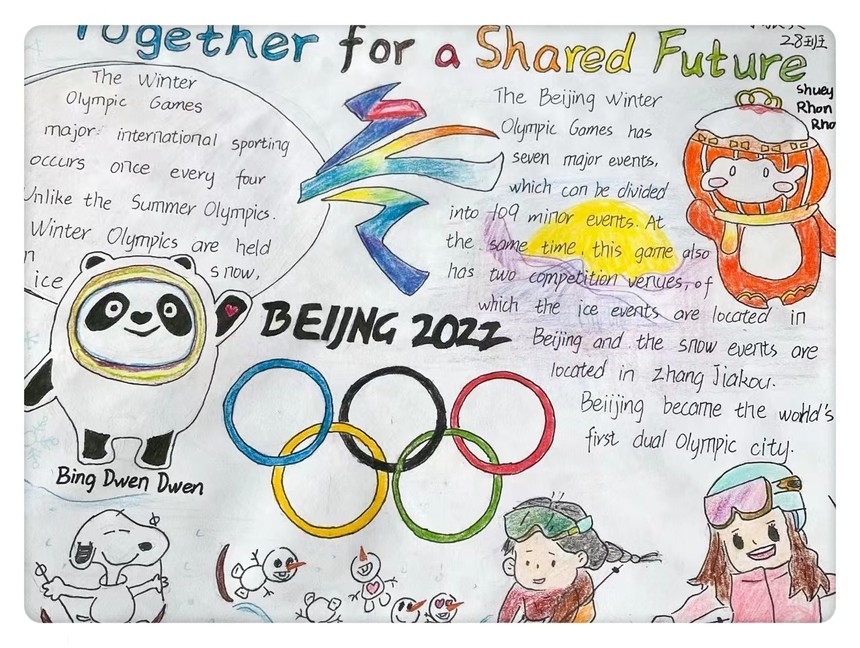 Together for a Shared Future
28班
The Winter
Olympic Games
major international sporting
occurs once every four
Unlike the Summer Olympics.
Winter Olympics are held
n
ice snow,
The Beijing Winter
Olympic Games has
seven major events,
which can be divided
into 109 minor events. At
the same time, this game also
has two competition venues, of
which the ice events are located in
Beijing and the snow events are
located in Zhang Jiakou.
Beiijing became the world's
first dual Olympic city.
Shuey
Rhon
Rho
BEIJNG 2022
Bing Dwen Dwen